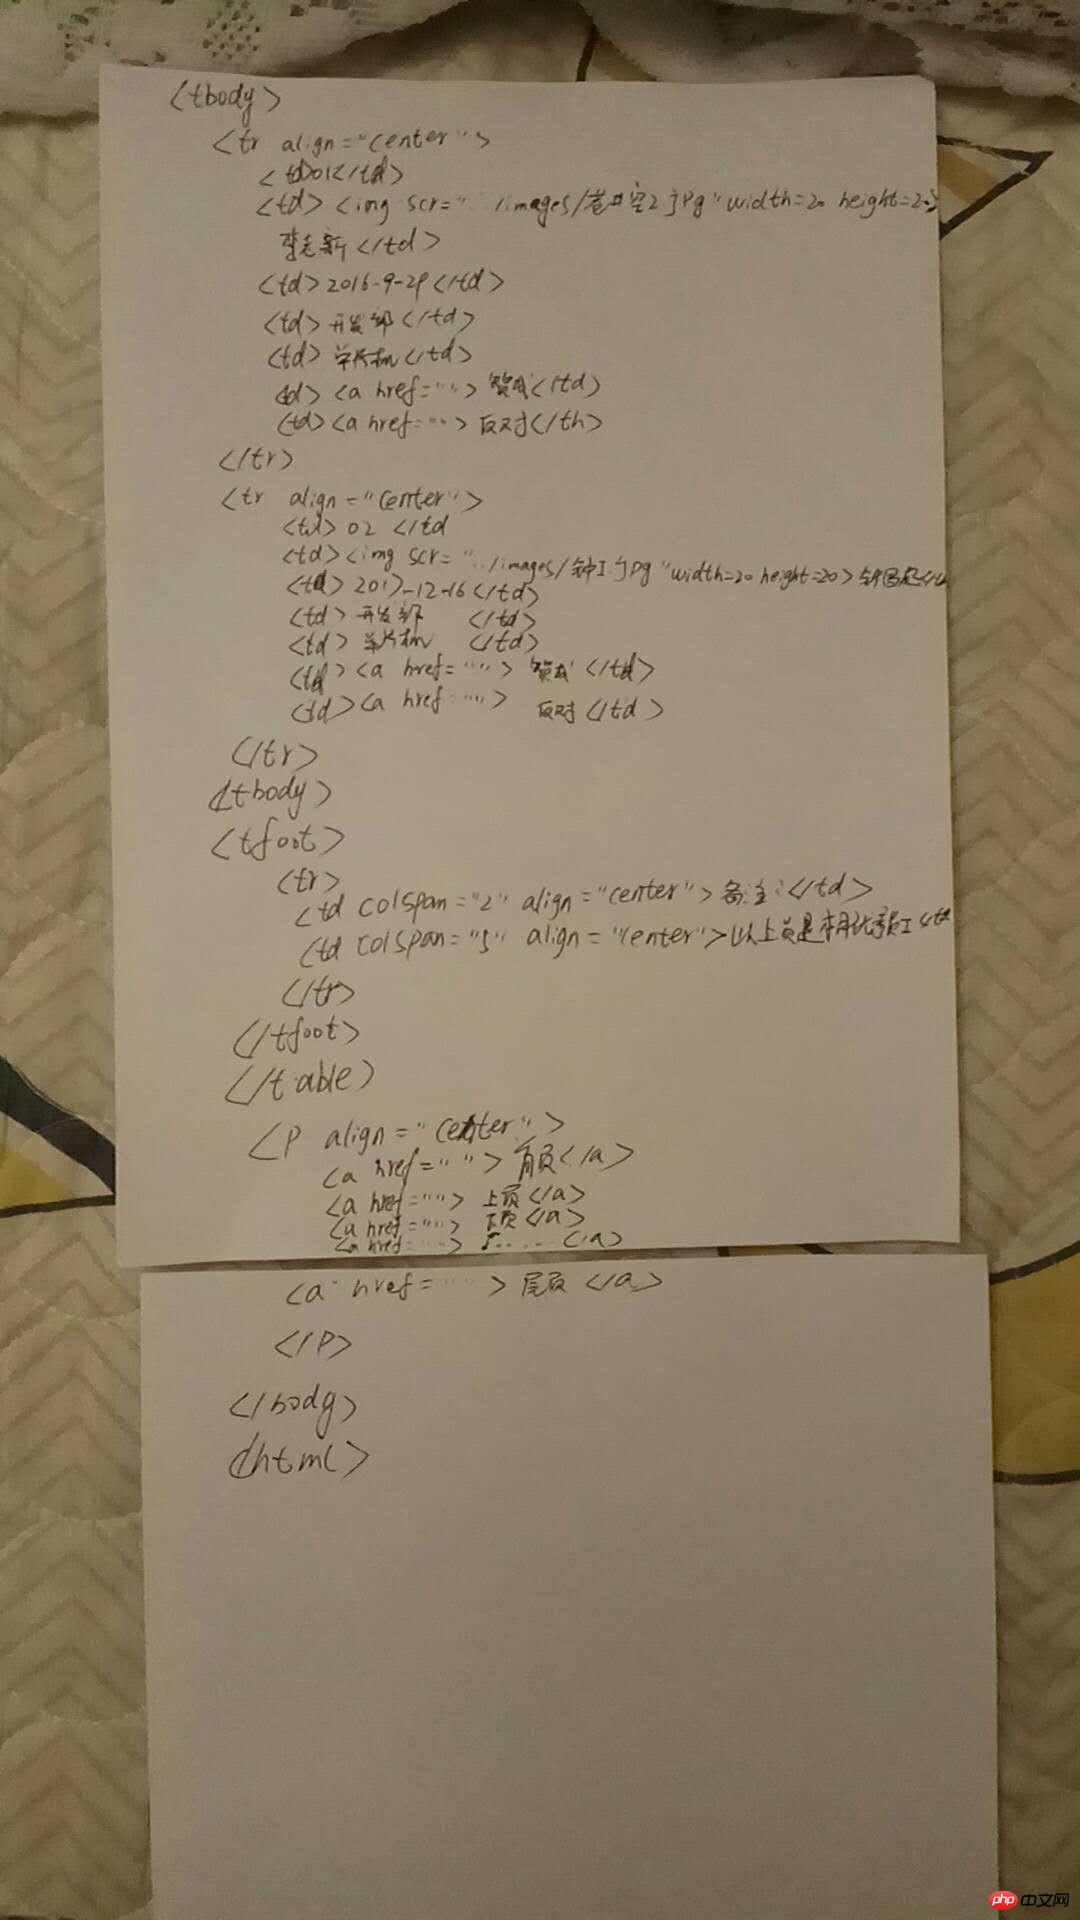 <tbody>
<tr align="center">
<td>01</td>
<td> <img scr="../images/苍井空2.jpg" width=20 height=20>
李 新</td>
<td>2016-9-29</td>
<td>开发部</td>
<td>单片机</td>
<td> <a href=""> 赞成</td>
<td><a href=""> 反对</th>
</tr>
<tr align="center">
<td> 02 </td
<td><img scr="../images/ .jpg" width=20 height=20>
<td> 2017-12-16</td>
<td> 开发部 </td>
<td> 单片机 </td>
<td> <a href=""> 赞成 </td>
<td> <a href=""> 反对 </td>
</tr>
</tbody>
<tfoot>
<tr>
<td colspan="2" align="center">备注:</td>
<td colspan="5" align="center">以上 是本月优秀员工</td
</tr>
</tfoot>
</table>
<p align="center">
<a href=""> 首页</a>
<a href=""> 上页</a>
<a href=""> 下页</a>
<a href=""> ...... </a>
<a href=""> 尾页 </a>
</p>
</body>
</html>
php中文网